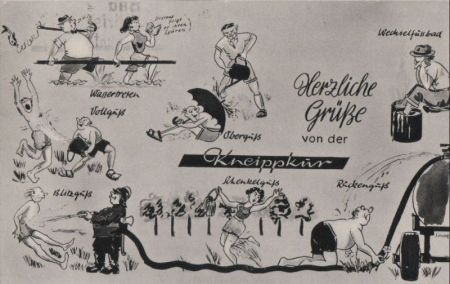 Wechselfußbad
Wassertreten
Herzliche
Grüße
von der
Kneippkur
Vollguß
Oberguß
Blitzguß
Schenkelguß
Rückenguß